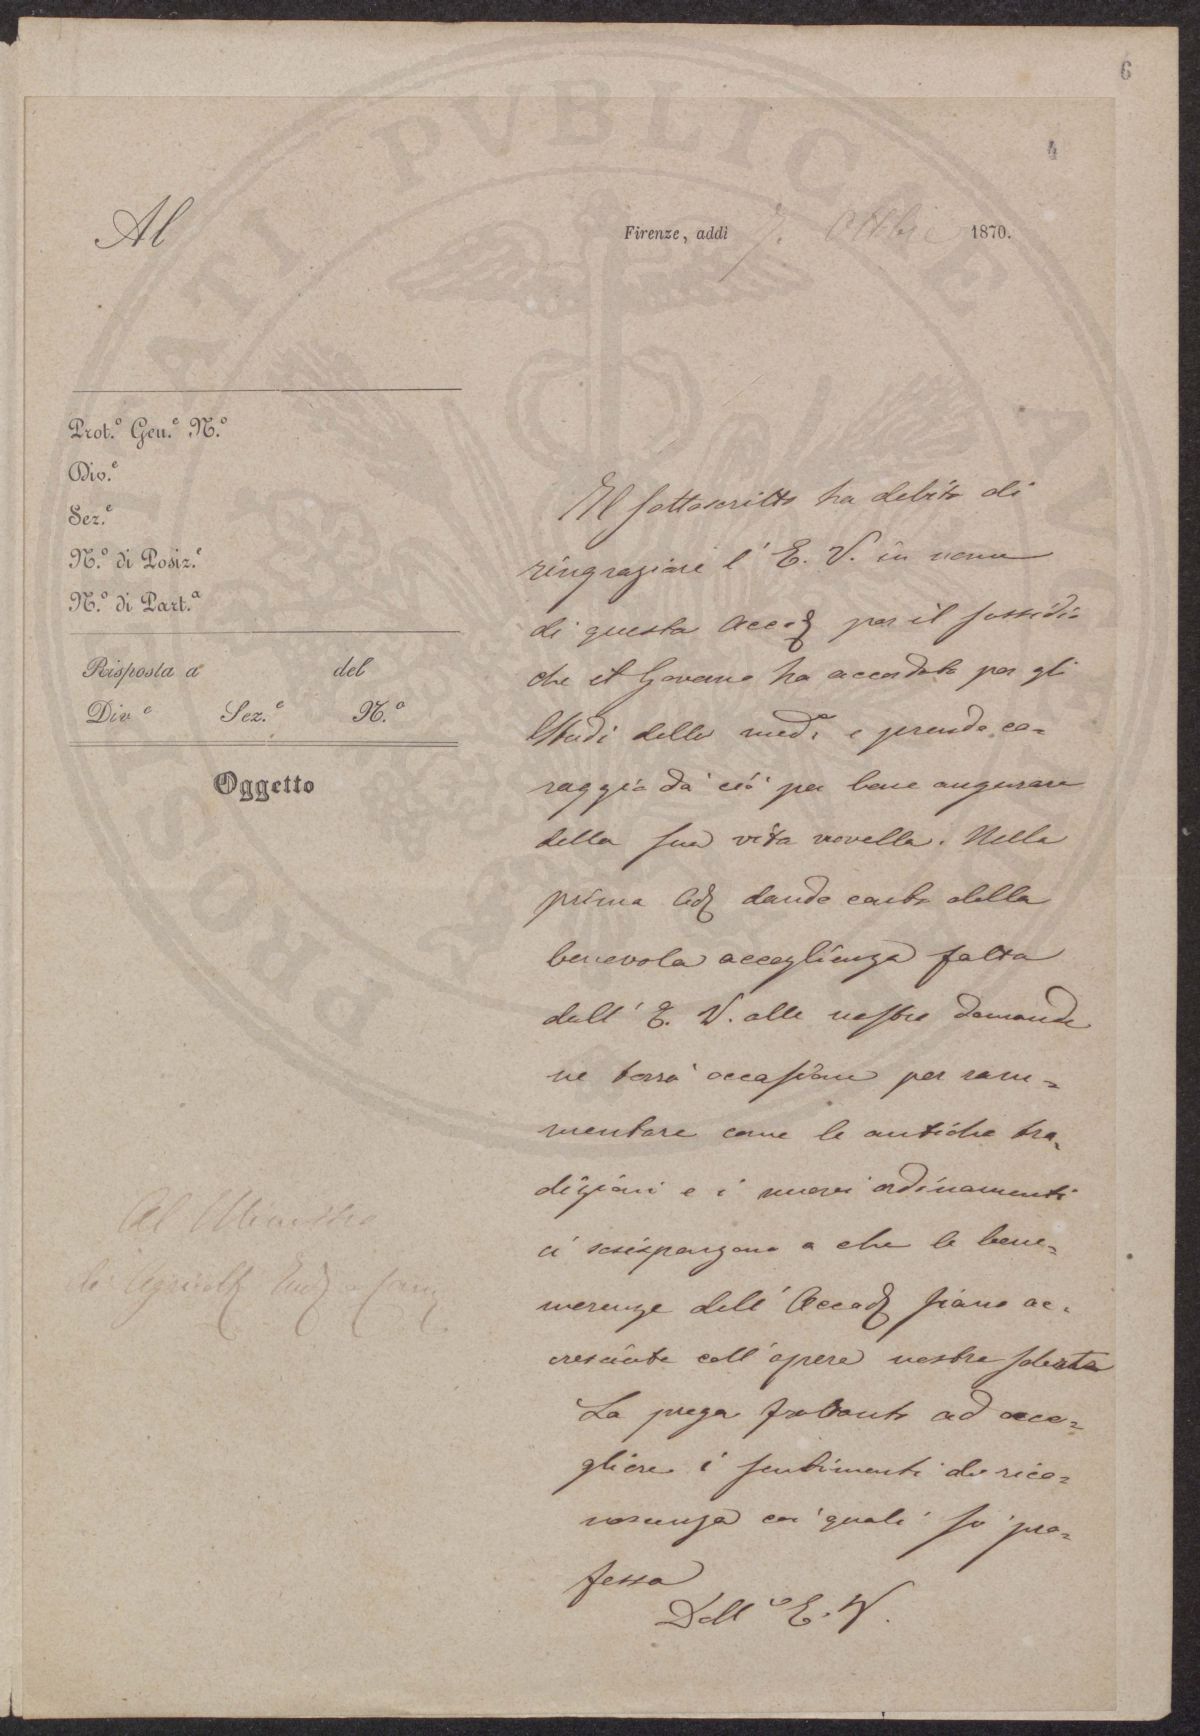 6
4
Al
Firenze, addì 7. Ottbre 1870.
Prot.º Gen.e N.º
Div.e
Sez.e
N.º di Posiz.e
N.º di Part.a
Risposta a del
Div.e Sez.e N.º
Oggetto
Il sottoscritto ha debito di
ringraziare l'E. V. in nome
di questa Accad per il sussidio
che il Governo ha accordato per gli
Studi della med.a e prende co=
raggio da ciò per bene augurare
della sua vita novella. Nella
prima Ad dando conto della
benevola accoglienza fatta
dall'E. V. alle nostre domande
ne terrà occasione per ram=
mentare come le antiche tra=
dizioni e i nuovi ordinamenti
ci sospongono a che le bene=
merenze dell'Accad siano ac=
cresciute coll'opera nostra solerte
La prega frattanto ad acco=
gliere i sentimenti di rico=
noscenza coi quali si pro=
fessa
Dell'E. V.
Al Ministro
di Agricolt Ind e Com